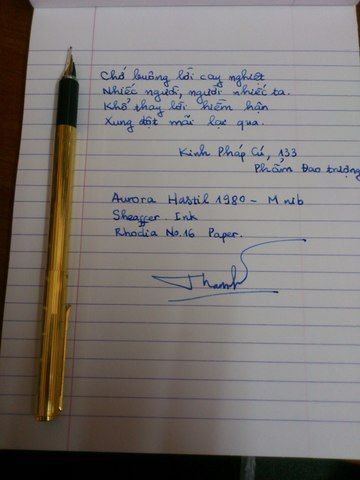 Chớ buông lời cay nghiệt
Nhiếc người, người nhiếc ta.
Khổ thay lời hiềm hận
Xung đột mãi lại qua.
Kinh Pháp Cú, 133
Phẩm Đao trượng
Aurora Hastil 1980 - M nib
Sheaffer Ink
Rhodia No.16 Paper.
Thanh